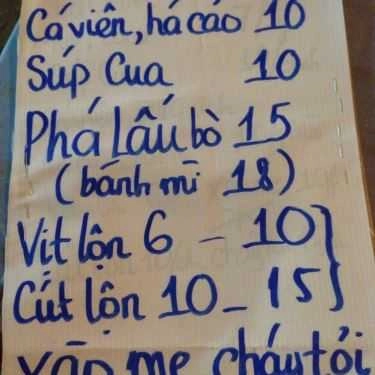 Cá viên, há cảo 10
Súp Cua 10
Phá Lấu bò 15
(bánh mì 18)
Vịt lộn 6 - 10
Cút lộn 10 - 15
xào me cháy tỏi